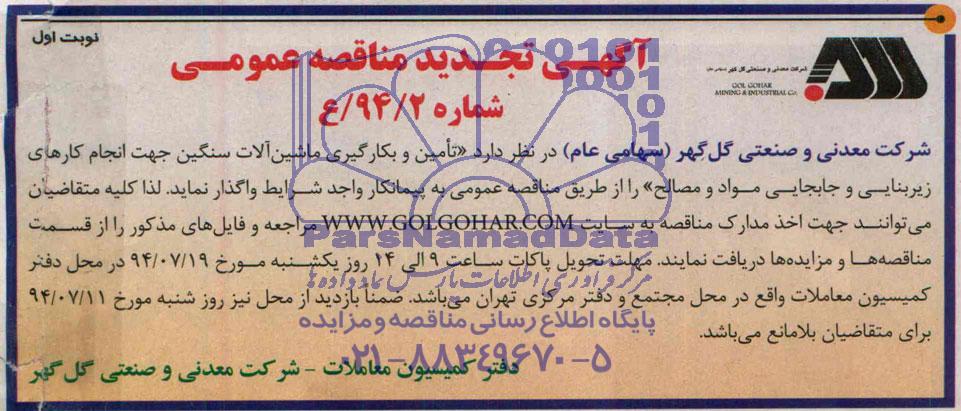 نوبت اول
شرکت معدنی و صنعتی گل گهر (سهامی عام)
GOL GOHAR
MINING & INDUSTRIAL Co.
آگهـی تجـدید مناقصه عمومـی
شماره ۹۴/۲/ع
شرکت معدنی و صنعتی گل‌گهر (سهامی عام) در نظر دارد «تأمین و بکارگیری ماشین‌آلات سنگین جهت انجام کارهای
زیربنایی و جابجایی مـواد و مصالح» را از طریق مناقصه عمومی به پیمانکار واجد شـرایط واگذار نماید. لذا کلیه متقاضیان
می‌تواننـد جهت اخذ مدارک مناقصه به سـایت WWW.GOLGOHAR.COM مراجعه و فایل‌های مذکور را از قسـمت
مناقصه‌هـا و مزایده‌ها دریافت نمایند. مهلت تحویل پاکات ساعت ۹ الی ۱۴ روز یکشـنبه مـورخ ۹۴/۰۷/۱۹ در محل دفتر
کمیسیون معاملات واقع در محل مجتمع و دفتر مرکزی تهران می‌باشد. ضمناً بازدید از محل نیز روز شنبه مورخ ۹۴/۰۷/۱۱
برای متقاضیان بلامانع می‌باشد.
دفتر کمیسیون معاملات - شرکت معدنی و صنعتی گل گهر
010101
1001
101
01
1
ParsNamadData
مرکز فرآوری اطلاعات پارس نماد داده‌ها
پایگاه اطلاع رسانی مناقصه و مزایده
۰۲۱-۸۸۳۴۹۶۷۰-۵